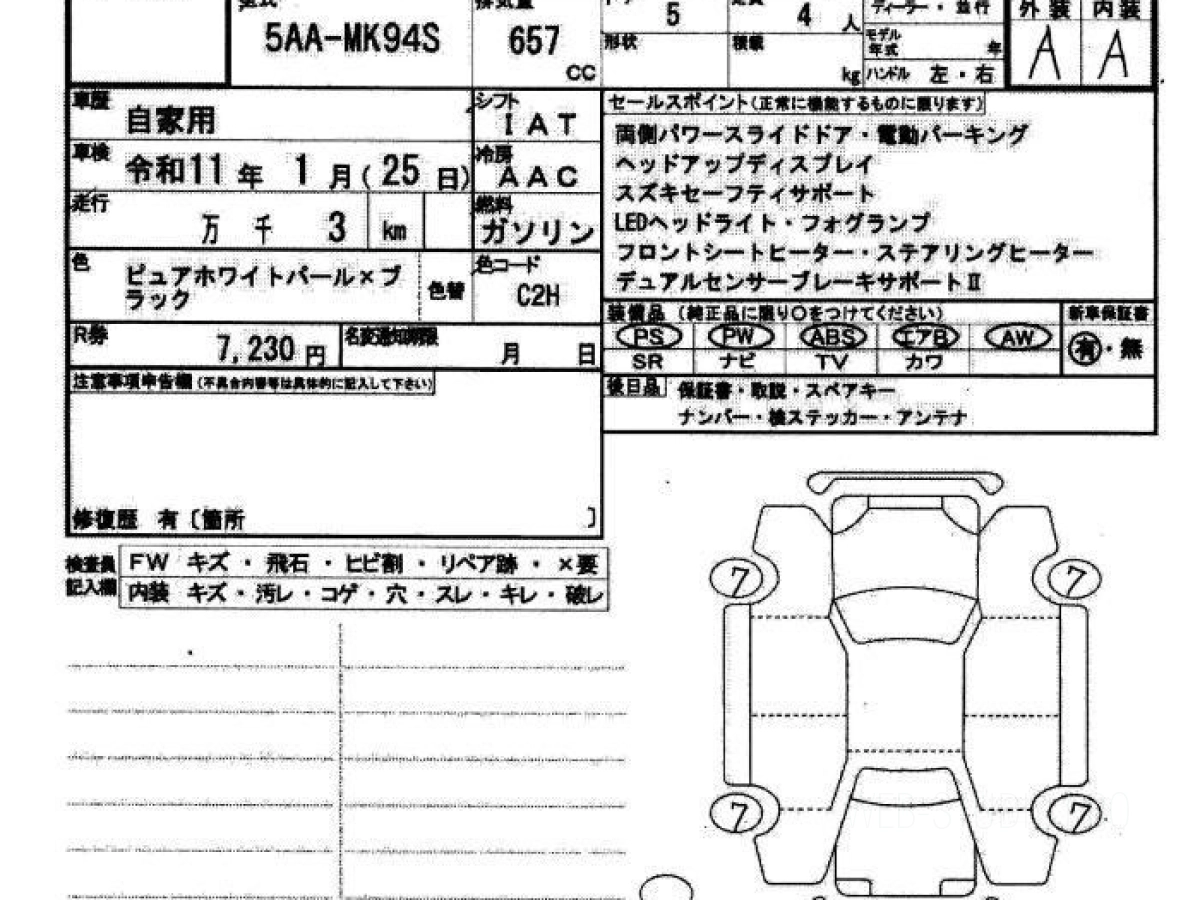 型式 5AA-MK94S
排気量 657 CC
5
定員 4 人
ディーラー・並行
外装 内装
A A
形状 積載 kg
モデル年式 年
ハンドル 左・右
車歴 自家用
シフト IAT
車検 令和11年 1月(25日)
冷房 AAC
走行 万 千 3 km
燃料 ガソリン
色 ピュアホワイトパール×ブラック
色替
色コード C2H
R券 7,230円
名変通知期限 月 日
注意事項申告欄(不具合内容等は具体的に記入して下さい)
修復歴 有〔箇所 〕
セールスポイント(正常に機能するものに限ります)
両側パワースライドドア・電動パーキング
ヘッドアップディスプレイ
スズキセーフティサポート
LEDヘッドライト・フォグランプ
フロントシートヒーター・ステアリングヒーター
デュアルセンサーブレーキサポートⅡ
装備品(純正品に限り〇をつけてください)
新車保証書
PS PW ABS エアB AW
有・無
SR ナビ TV カワ
後日品 保証書・取説・スペアキー
ナンバー・検ステッカー・アンテナ
検査員記入欄
FW キズ・飛石・ヒビ割・リペア跡・×要
内装 キズ・汚レ・コゲ・穴・スレ・キレ・破レ
7 7
7 7